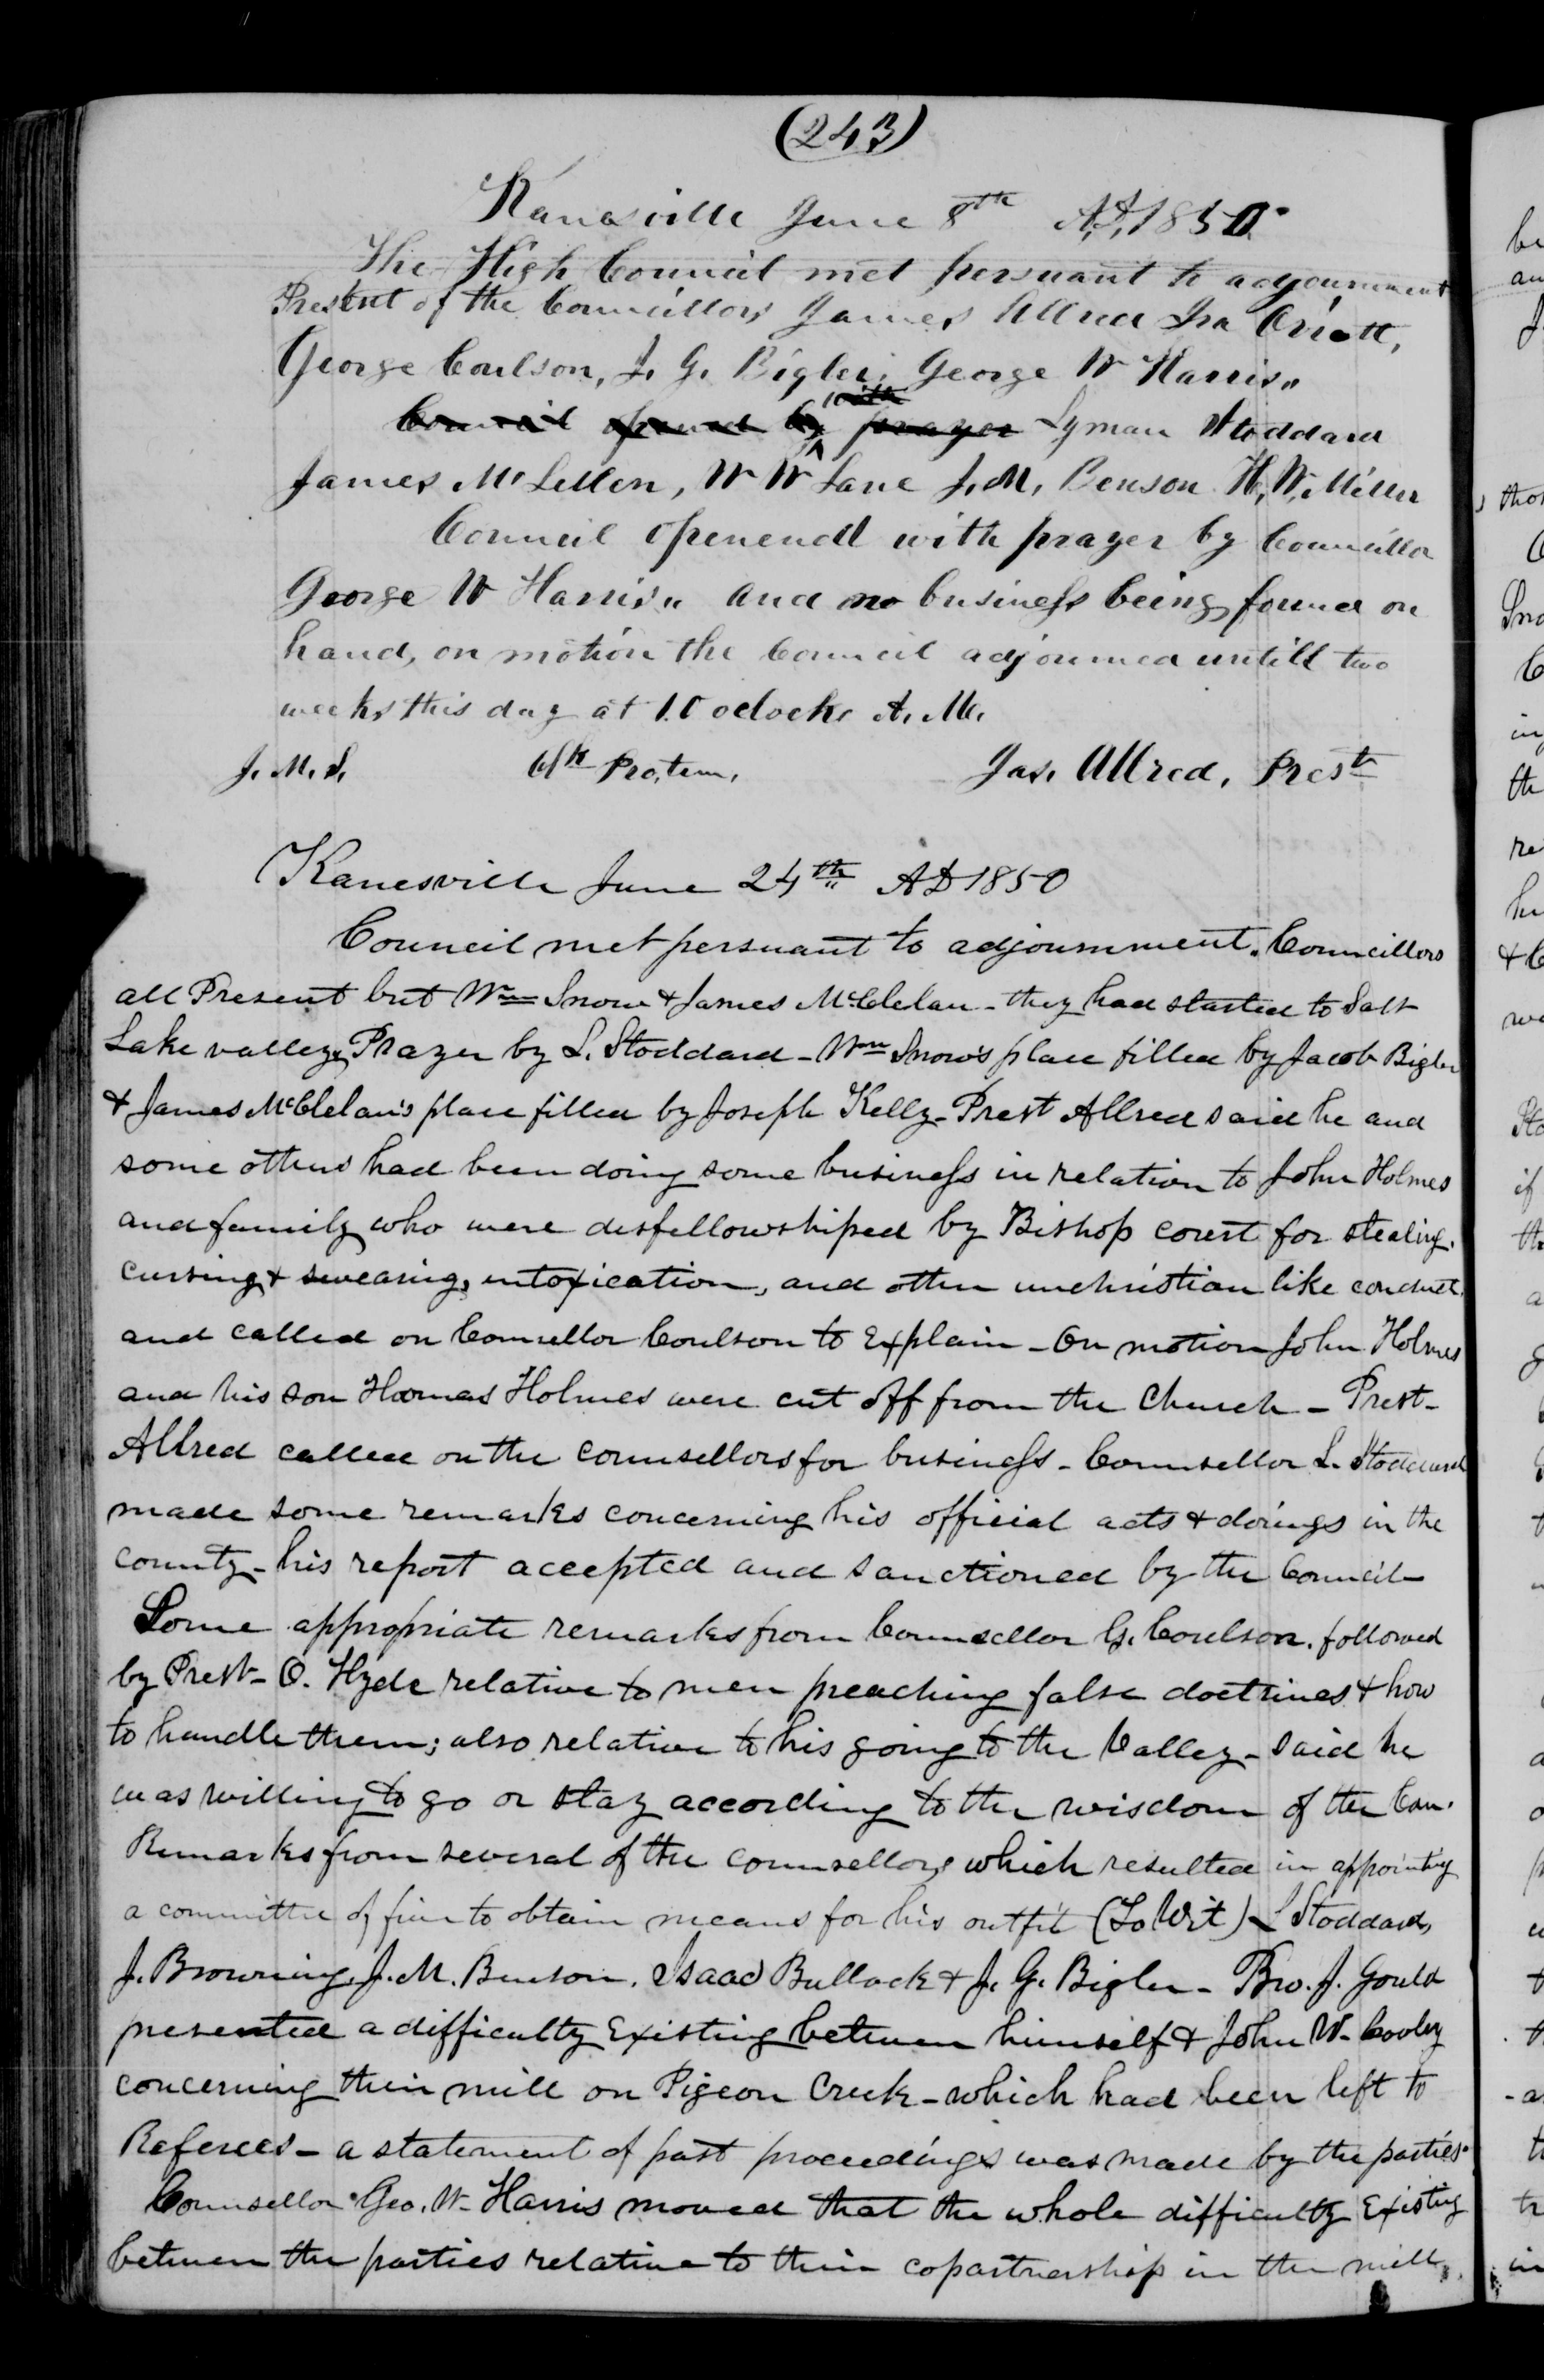 (243)
Kanesville June 8th A.D. 1850.
The High Council met persuant to adjournment
Present of the Councillors James Allred Ira Oviatt,
George Coulson, J. G. Bigler, George W Harris,,
Council opened by with prayer Lyman Stoddard
James McLellen, W W Lane J. M. Benson H. W. Miller
Council openend with prayer by Councillor
George W Harris,, and no business being found on
hand, on motion the Council adjourned untill two
weeks this day at 10 oclock A. M.
J. M. S. Clk Protem. Jas. Allred, Prest
Kanesville June 24th AD 1850
Council met persuant to adjournment. Councillors
all Present but Wm Snow & James McClelan - they had started to Salt
Lake valley, Prayer by L. Stoddard - Wm Snow's place filled by Jacob Bigler
& James McClelan's place filled by Joseph Kelly - Prest Allred said he and
some others had been doing some business in relation to John Holmes
and family who were disfellowshiped by Bishop court for stealing.
cursing & swearing, intoxication, and other unchristian like conduct.
and called on Counsellor Coulson to Explain - On motion John Holmes
and his son Thomas Holmes were cut off from the Church - Prest-
Allred called on the counsellors for business - Counsellor L. Stoddard
made some remarks concerning his official acts & doings in the
county - his report accepted and sanctioned by the Council -
Some appropriate remarks from Counsellor G. Coulson. followed
by Prest - O. Hyde relative to men preaching false doctrines & how
to handle them; also relative to his going to the Valley - said he
was willing to go or stay according to the wisdom of the Coun.
Remarks from several of the counsellors which resulted in appointing
a committee of five to obtain means for his outfit (To Wit) - L Stoddard,
J. Browning, J. M. Benson. Isaac Bullock & J. G. Bigler - Bro. J. Gould
presented a difficulty Existing between himself & John W. Cooley
concerning their mill on Pigeon Creek - which had been left to
Referees - a statement of past proceedings was made by the parties.
Counsellor Geo. W. Harris moved that the whole difficulty Existing
between the parties relative to their copartnership in the mill,